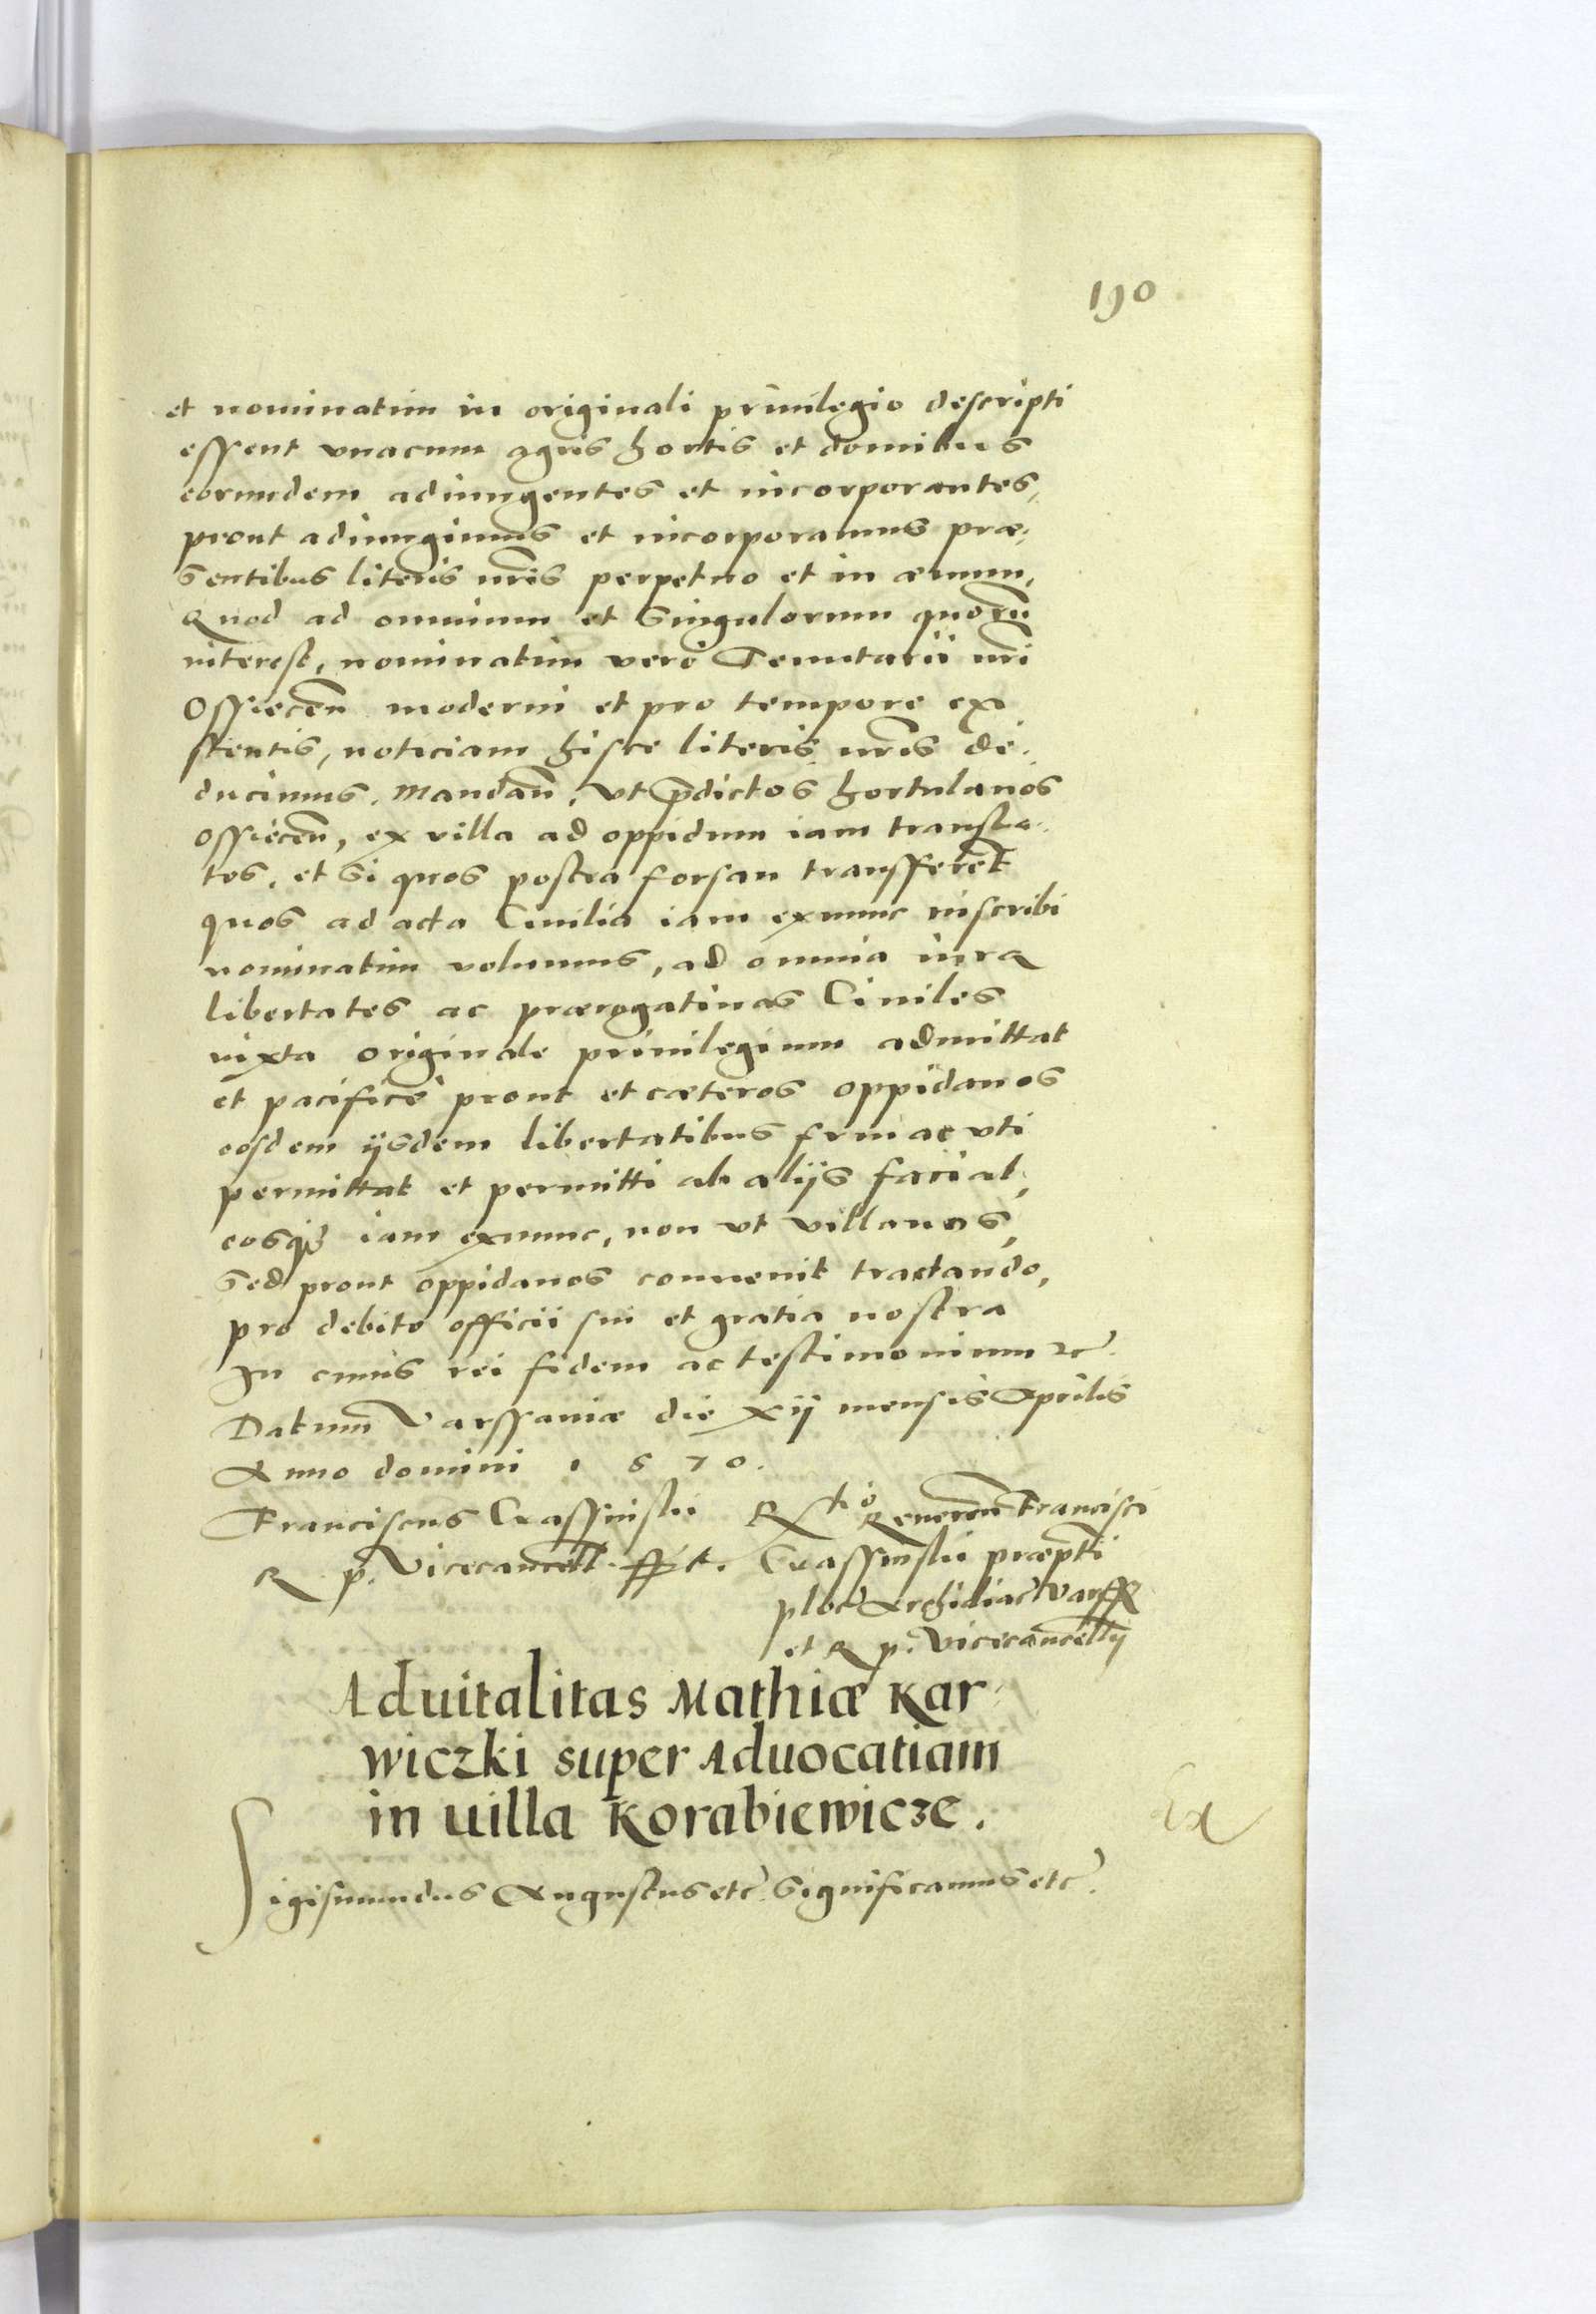 190
et nominatim in originali priuilegio descripti
essent vnacum agris hortis et domibus
eorundem adiungentes et incorporantes,
prout adiungimus et incorporamus præ-
sentibus literis nr̃is perpetuo et in æuum,
Quod ad omnium et singulorum quorũ
interest, nominatim vero Tenutarii nr̃i
Ossiecen̄ moderni et pro tempore exi
stentis, noticiam hisce literis nr̃is de-
ducimus. Mandan̄, vt p̄dictos hortulanos
Ossiecen̄, ex villa ad oppidum iam transla-
tos, et si quos postea forsan transfferet
quos ad acta Ciuilia iam exnunc inscribi
nominatim volumus, ad omnia iura
libertates ac prærogatiuas Ciuiles
iuxta originale priuilegium admittat
et pacifice prout et cæteros oppidanos
eosdem ijsdem libertatibus frui ac vti
permittat et permitti ab alijs faciat,
eosq₃ iam exnunc, non vt villanos,
sed prout oppidanos conuenit tractando,
pro debito officii sui et gratia nostra
In cuius rei fidem ac testimonium etc̃.
Datum Varssauiæ die xij mensis Aprilis
Anno domini 1570.
Franciscus Crassinski R̃tio Reueren̄ Francisci
R. p. Vicecancell. sst. Crassinskii præpti
ploc̃ Archidiac̃ Varss
et R p. Vicecancellij
Aduitalitas Mathiæ Kar-
wiczki super Aduocatiam
in uilla Korabiewicze.
Ex
Sigismundus Augustus etc̃. Significamus etc̃.